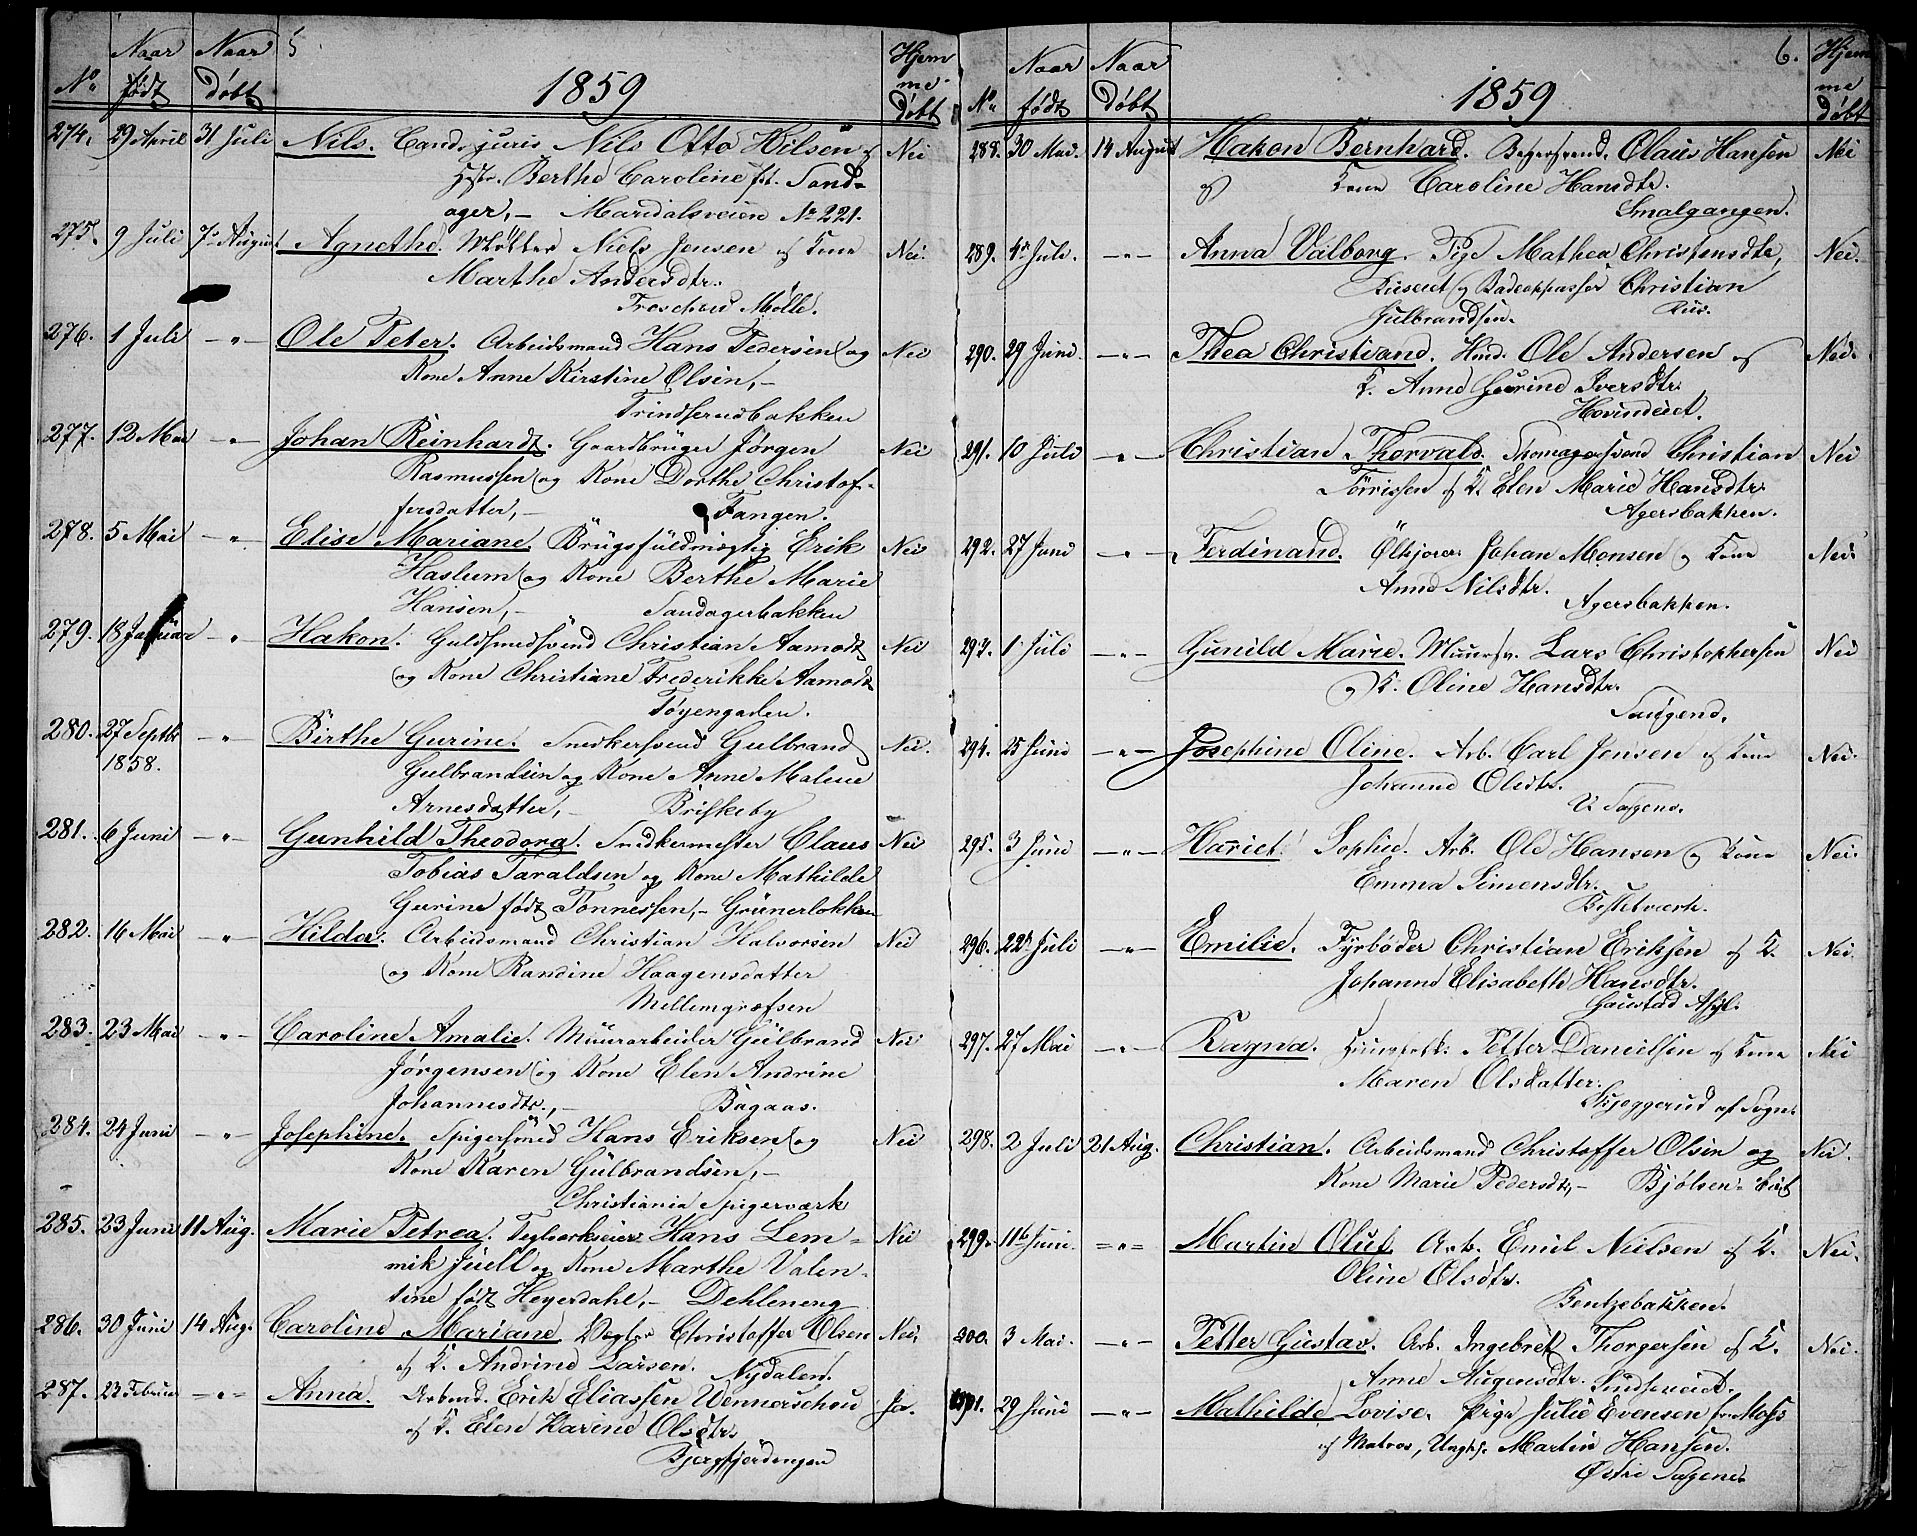 5
No Naar født Naar døbt 1859 Hjemme døbt
274. 29 April 31 Juli Nils. Cand. juris Nils Otto Hilsen og Nei
Hstr. Berthe Caroline fdt. Sand-
ager, – Maridalsveien No 221.
275. 9 Juli 7 August Agnethe. Møller Niels Jensen og Kone Nei.
Marthe Andersdtr.
Treschou Mølle.
276. 1 Juli – " – Ole Peter. Arbeidsmand Hans Pedersen og Nei
Kone Anne Kirstine Olsen, –
Trindserudbakken
277. 12 Mai – " – Johan Reinhardt. Gaardbruger Jørgen Nei
Rasmussen og Kone Dorthe Christof-
fersdatter, – Tangen.
278. 5 Mai – " – Elise Mariane. Brugsfuldmægtig Erik Nei
Haslum og Kone Berthe Marie
Hansen, – Sandagerbakken
279. 18 Januar " – Hakon. Guldsmedsvend Christian Aamodt Nei
og Kone Christiane Frederikke Aamodt
Tøyengaden.
280. 27 Septbr – " – Birthe Gurine. Snedkersvend Gulbrand Nei.
1858. Gulbrandsen og Kone Anne Malene
Arnesdatter, – Briskeby
281. 6 Juni – " – Gunhild Theodora. Snedkermester Claus Nei
Tobias Taraldsen og Kone Mathilde
Gurine født Tønnessen, – Grünerløkken
282. 16 Mai – " – Hilda. Arbeidsmand Christian Halvorsen Nei
og Kone Randine Haagensdatter
Mellemgræfsen
283. 23 Mai – " – Caroline Amalie. Muurarbeider Gulbrand Nei
Jørgensen og Kone Elen Andrine
Johannesdtr., – Bagaas.
284. 24 Juni – " – Josephine. Spigersmed Hans Eriksen og Nei
Kone Karen Gulbrandsen, –
Christiania Spigerværk
285. 23 Juni 11 Aug. Marie Petrea. Teglværkseier Hans Lem- Nei
mik Juell og Kone Marthe Valen-
tine født Heyerdahl, – Dehleneng
286. 30 Juni 14 Aug. Caroline Mariane Christoffer Olsen Nei.
og K. Andrine Larsen. Nydalen.
287. 23 Februar – " – Anna. Arbmd. Erik Eliassen Wennerschou Ja.
og K. Elen Karine Olsdtr.
Bjergfjerdingen
6.
No Naar født Naar døbt 1859 Hjemme døbt
288. 30 Mai. 14 August Hakon Bernhard. Bagersvend. Olaus Hansen Nei
og Kone Caroline Hansdtr.
Smalgangen.
289. 4 Juli. – " – Anna Valborg. Pige Mathea Christensdtr, Nei.
og Badeopasser Christian
Gulbrandsen.
290. 29 Juni. – " – Thea Christiane. Ole Andersen og Nei.
K. Anne Gurine Iversdtr.
Hovindeiet.
291. 10 Juli – " – Christian Thorvald. Skomagersvend Christian Nei
Tørrissen og K. Elen Marie Hansdtr.
Agersbakken.
292. 27 Juni – " – Ferdinand. Ølkjører Johan Monsen og Kone Nei.
Anne Nilsdtr.
Agersbakken.
293. 1 Juli – " – Gunild Marie. Muursv. Lars Christophersen Nei
og K. Oline Hansdtr.
Saugene.
294. 25 Juni – " – Josephine Oline. Arb. Carl Jensen og Kone Nei.
Johanne Olsdtr.
V. Sagene.
295. 3 Juni – " – Hariet Sophie. Arb. Ole Hansen og Kone Nei.
Emma Simensdtr.
296. 22 Juli – " – Emilie. Fyrbøder Christian Eriksen og K. Nei.
Johanne Elisabeth Hansdtr.
Gaustad Asyl.
297. 27 Mai – " – Ragna. Petter Danielsen og Kone Nei
Maren Olsdatter.
Skjeggerud af Sogn.
298. 2 Juli 21 Aug. Christian. Arbeidsmand Christoffer Olsen og Nei.
Kone Marie Pedersdtr, – Bjølsen-
299. 11 Juni. = " = Martin Oluf. Arb. Emil Nielsen og K. Nei.
Oline Olsdtr.
Bentzebakken.
300. 3 Mai. – " – Petter Gustav. Arb. Ingebret Thorgersen og K. Nei.
Anne Augensdtr.
301. 29 Juni – " – Mathilde Lovise. Pige Julie Evensen fra Moss
og Matros, Ungk. Martin Hansen.
Østre Sagene.